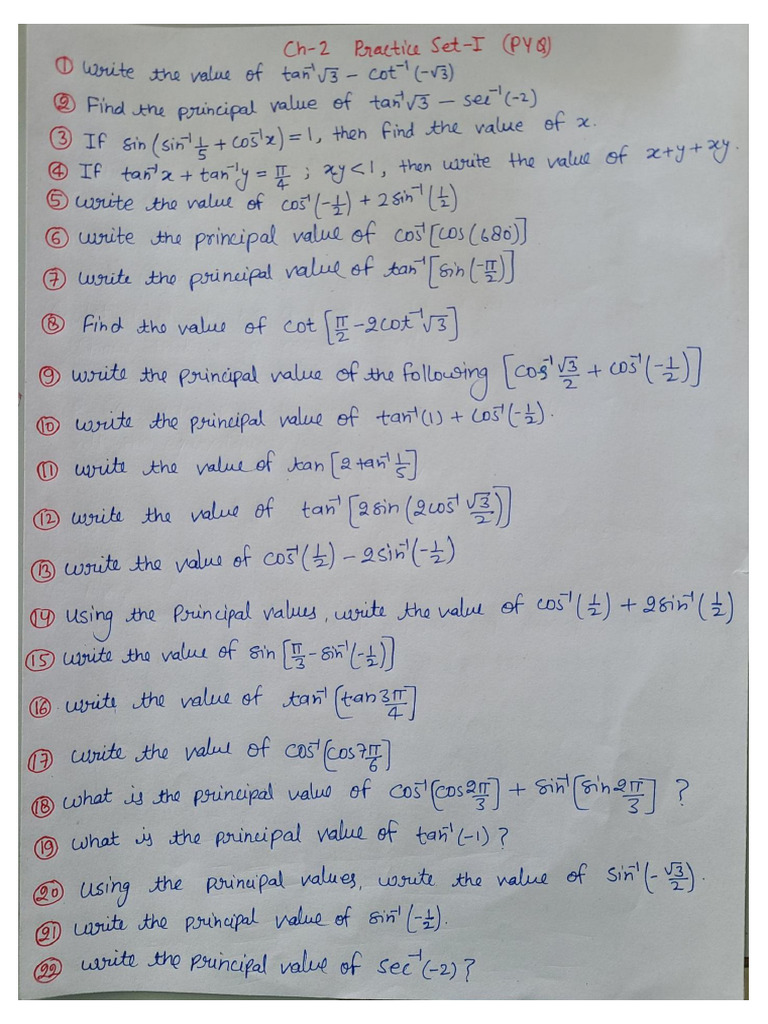 Ch-2 Practice Set-I (PYQ)
① Write the value of tan⁻¹√3 − cot⁻¹(−√3)
② Find the principal value of tan⁻¹√3 − sec⁻¹(−2)
③ If sin(sin⁻¹ 1/5 + cos⁻¹x) = 1, then find the value of x.
④ If tan⁻¹x + tan⁻¹y = π/4 ; xy < 1, then write the value of x+y+xy.
⑤ write the value of cos⁻¹(−1/2) + 2sin⁻¹(1/2)
⑥ write the principal value of cos⁻¹[cos(680)]
⑦ write the principal value of tan⁻¹[sin(−π/2)]
⑧ Find the value of cot[π/2 − 2cot⁻¹√3]
⑨ write the principal value of the following [cos⁻¹ √3/2 + cos⁻¹(−1/2)]
⑩ write the principal value of tan⁻¹(1) + cos⁻¹(−1/2).
⑪ write the value of tan[2 tan⁻¹ 1/5]
⑫ write the value of tan⁻¹[2 sin(2cos⁻¹ √3/2)]
⑬ write the value of cos⁻¹(1/2) − 2sin⁻¹(−1/2)
⑭ Using the Principal values, write the value of cos⁻¹(1/2) + 2sin⁻¹(1/2)
⑮ write the value of sin[π/3 − sin⁻¹(−1/2)]
⑯ write the value of tan⁻¹[tan 3π/4]
⑰ write the value of cos⁻¹[cos 7π/6]
⑱ what is the principal value of cos⁻¹[cos 2π/3] + sin⁻¹[sin 2π/3] ?
⑲ what is the principal value of tan⁻¹(−1) ?
⑳ Using the principal values, write the value of sin⁻¹(−√3/2).
㉑ write the principal value of sin⁻¹(−1/2).
㉒ write the principal value of sec⁻¹(−2) ?